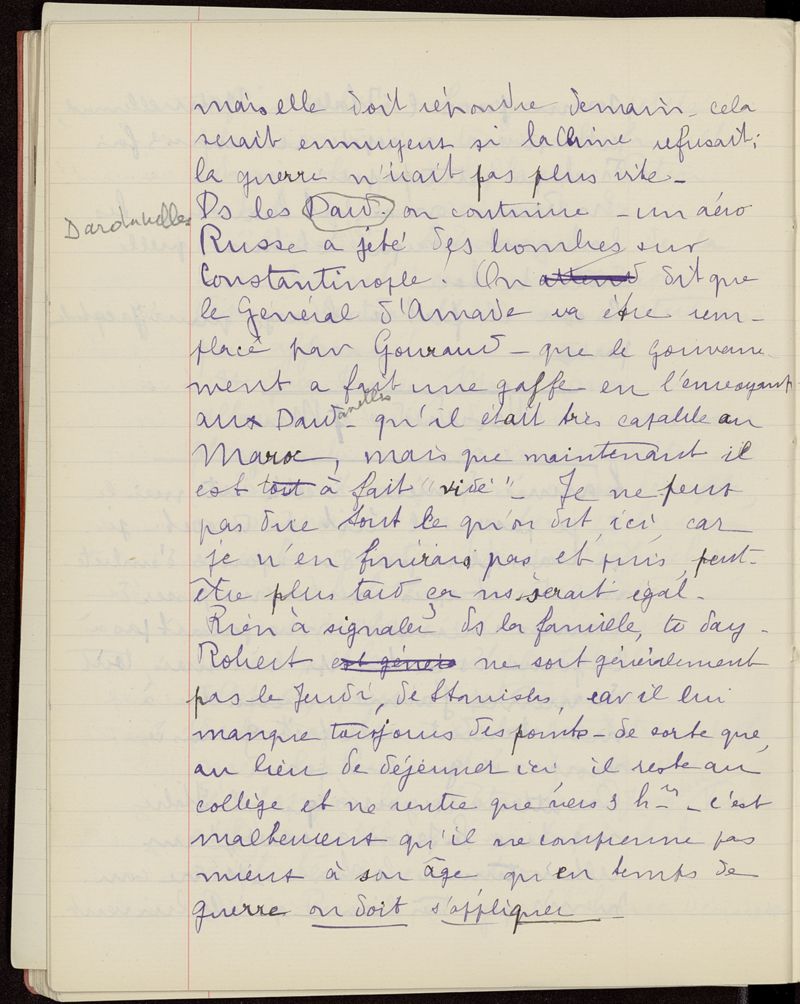 mais elle doit répondre demain - cela
serait ennuyeux si la Chine refusait;
la guerre n'irait pas plus vite -
Dardanelles
Ds les Dard. on continue - un aéro
Russe a jeté des bombes sur
Constantinople. On attend dit que
le Général d'Amade va être rem-
placé par Gouraud - que le gouverne-
ment a fait une gaffe en l'envoyant
aux Dardanelles - qu'il était très capable au
Maroc, mais que maintenant il
est tout à fait "vidé" - Je ne peux
pas dire tout ce qu'on dit, ici, car
je n'en finirais pas et puis, peut-
être plus tard ça ns serait égal -
Rien à signaler ds la famille, to day -
Robert est génér ne sort généralement
pas le Jeudi, de Stanislas, car il lui
manque toujours des points - de sorte que,
au lieu de déjeuner ici, il reste au
collège et ne rentre que vers 3 hres - c'est
malheureux qu'il ne comprenne pas
mieux à son âge qu'en temps de
guerre on doit s'appliquer